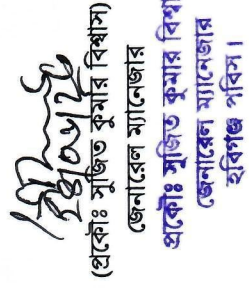 (প্রকৌঃ সুজিত কুমার বিশ্বাস)
জেনারেল ম্যানেজার
প্রকৌঃ সুজিত কুমার বিশ্বা
জেনারেল ম্যানেজার
হবিগঞ্জ পবিস।